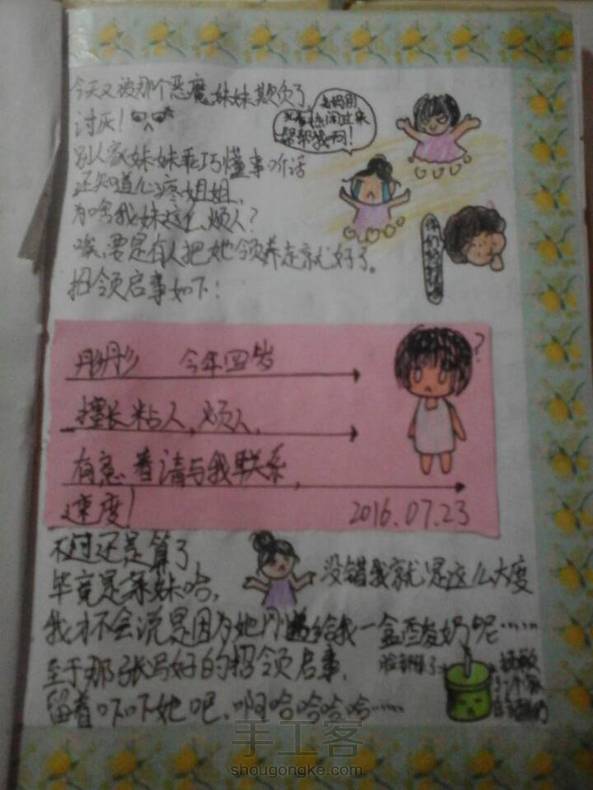 今天又被那个恶魔妹妹欺负了
讨厌！
别人家妹妹乖巧懂事听话
还知道心疼姐姐，
为啥我妹这么烦人？
唉，要是有人把她领养走就好了。
招领启事如下：
帮帮我啊！
今年四岁
擅长粘人，烦人，
有意者请与我联系，
速度！
2016.07.23
不过还是算了
毕竟是亲妹哈，
没错我就是这么大度
我才不会说是因为她刚递给我一盒酸奶呢……
至于那张写好的招领启事，
留着吓吓她吧，啊哈哈哈哈……
手工客
shougongke.com